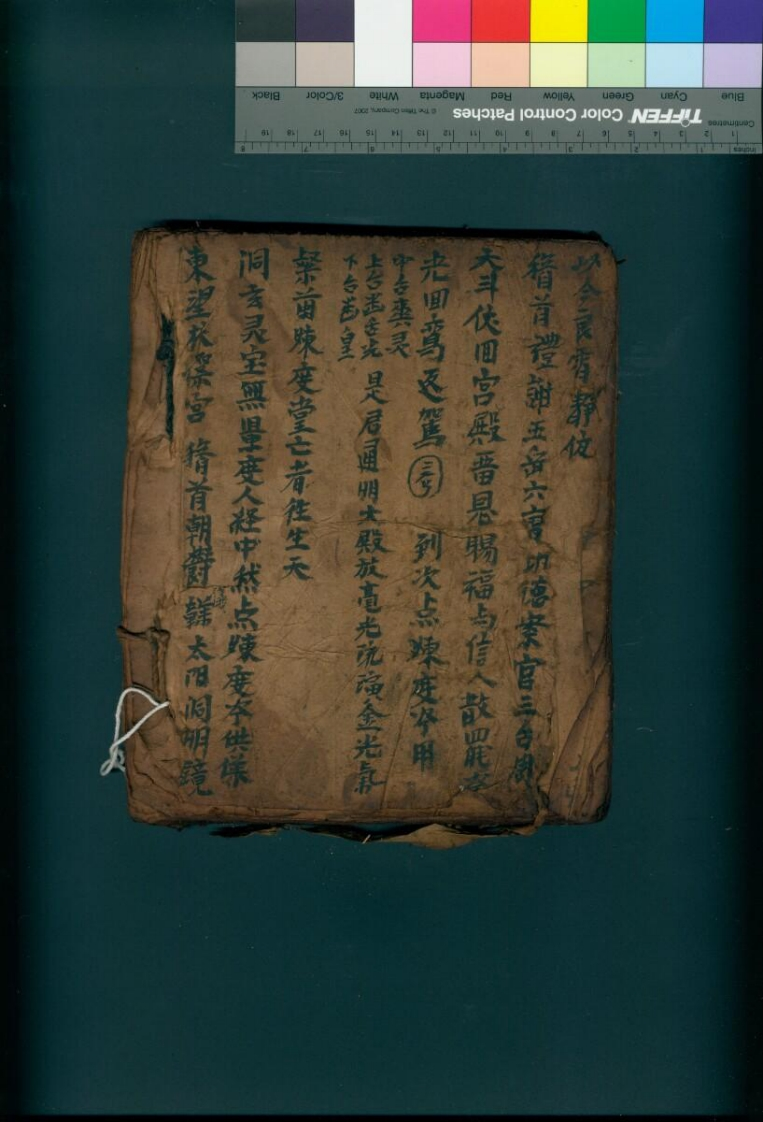 以今良宵靜夜
稽首禮謝五岳六曹功德案官三台
天斗伏回宮殿晋恩賜福与信人散罷
光回鸞返駕 三 到次点煉度夲用
中台 灵
上台
下台 皇
是君通明大殿放毫光 金光氣
煉度堂亡者往生天
洞玄灵宝無量度人経中然点煉度夲供養
東望扶桑宮 稽首朝欝 太陽洞明鏡
Blue Cyan Green Yellow Red Magenta White 3/Color Black
TIFFEN Color Control Patches © The Tiffen Company, 2007
Centimetres 1 2 3 4 5 6 7 8 9 10 11 12 13 14 15 16 17 18 19
Inches 1 2 3 4 5 6 7 8